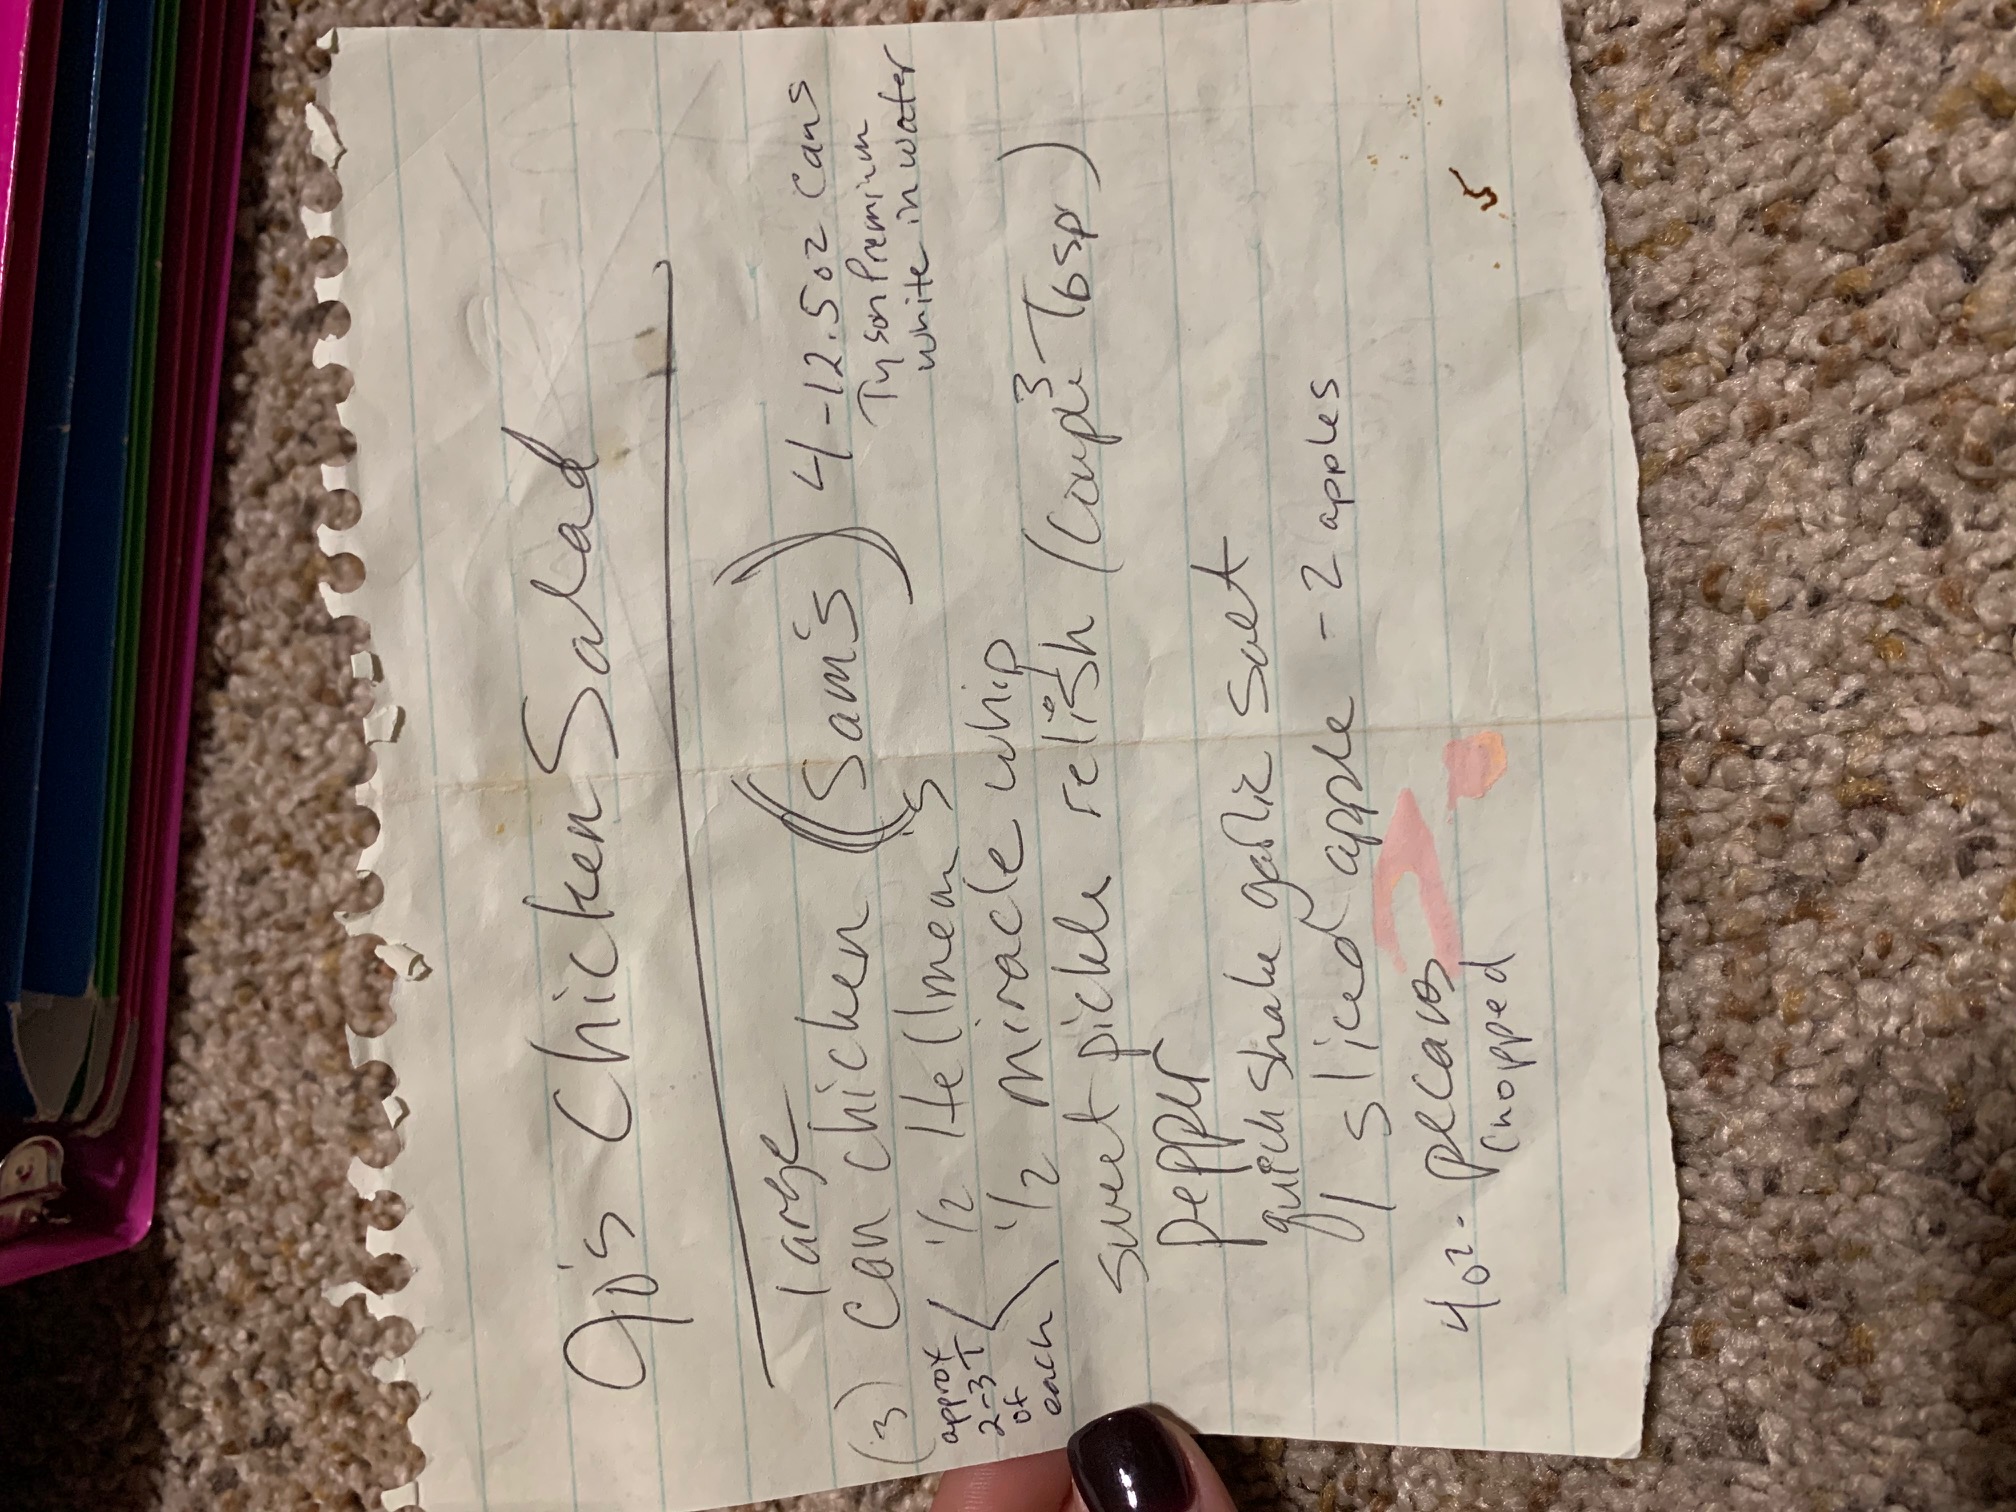 Jo's Chicken Salad
large
(3) Can chicken (Sam's) 4-12.5oz cans
Tyson Premium
white in water
approx
2-3T
of
each
1/2 Hellmean's
1/2 miracle whip
sweet pickle relish (Couple 3 Tbsp)
pepper
quick shake garlic salt
1 sliced apple - 2 apples
4oz. pecans
Chopped